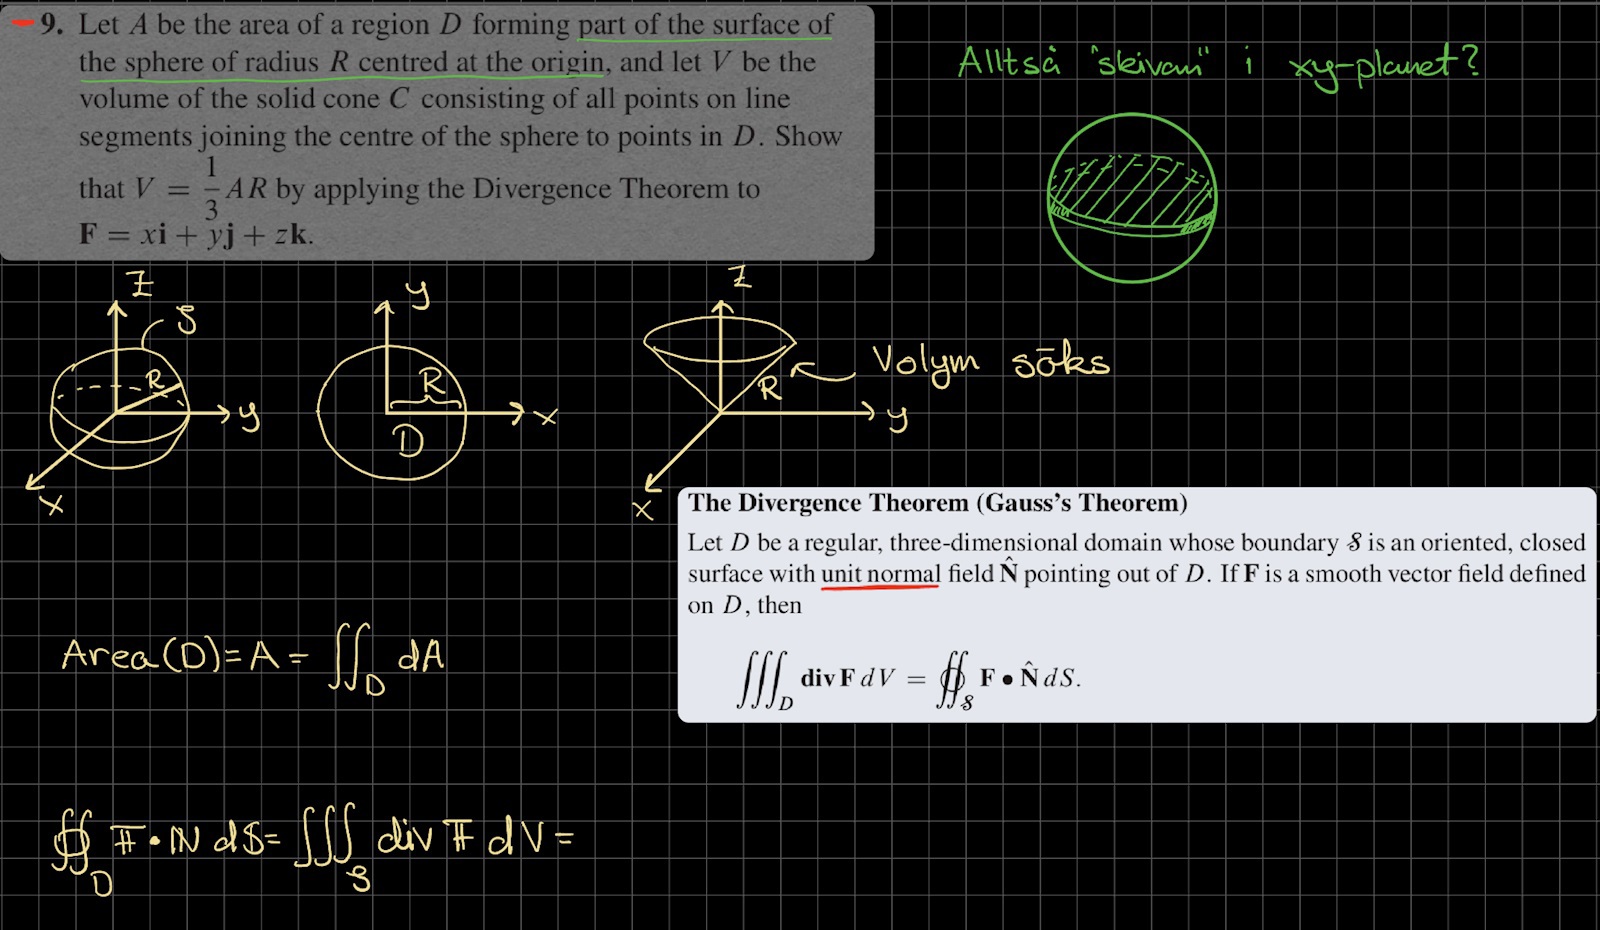 9. Let A be the area of a region D forming part of the surface of
the sphere of radius R centred at the origin, and let V be the
volume of the solid cone C consisting of all points on line
segments joining the centre of the sphere to points in D. Show
that V = 1/3 AR by applying the Divergence Theorem to
F = xi + yj + zk.
Alltså "skivan" i xy-planet?
z
S
R
y
x
y
R
x
D
z
Volym söks
R
y
x
The Divergence Theorem (Gauss's Theorem)
Let D be a regular, three-dimensional domain whose boundary 𝒮 is an oriented, closed
surface with unit normal field N̂ pointing out of D. If F is a smooth vector field defined
on D, then
∭_D div F dV = ∯_𝒮 F • N̂ dS.
Area(D) = A = ∬_D dA
∯_D F • N dS = ∭_S div F dV =